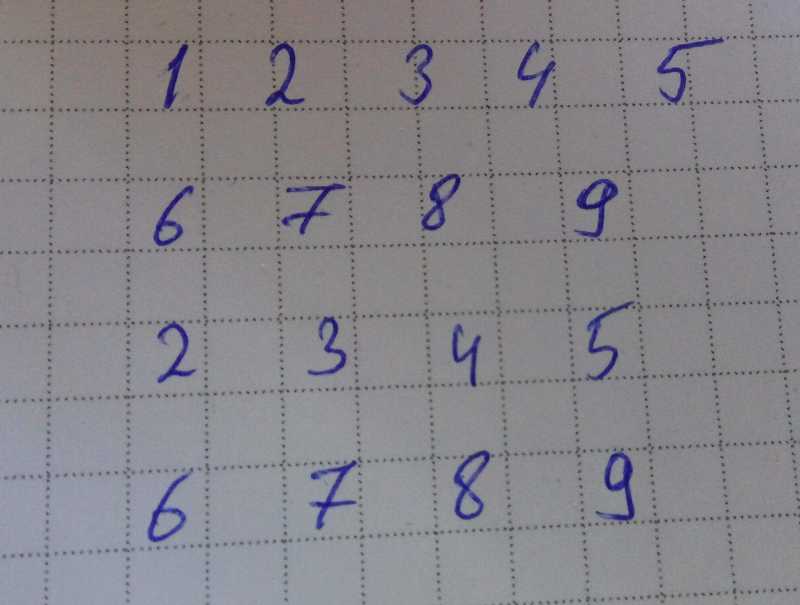 1 2 3 4 5
6 7 8 9
2 3 4 5
6 7 8 9